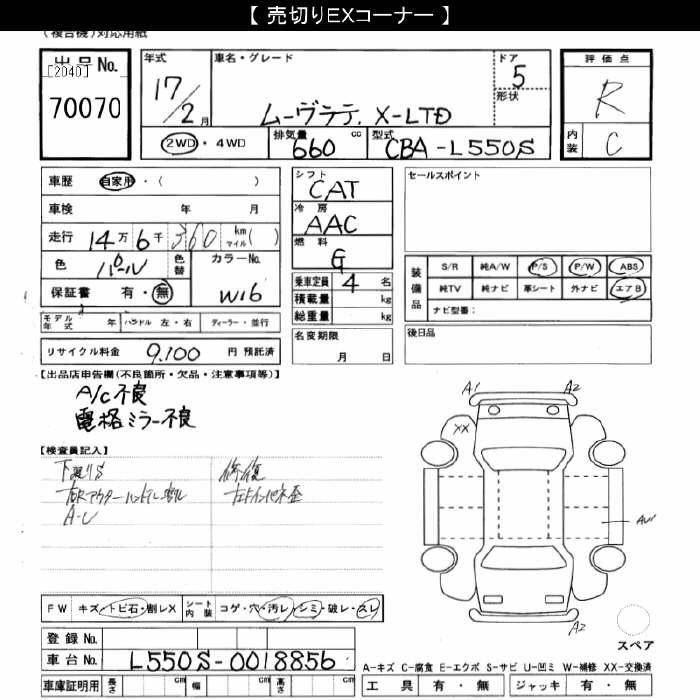 【 売切りEXコーナー 】
(複合機)対応用紙
出品No.
[2040]
70070
年式
17/2月
車名・グレード
ムーヴラテ. X-LTD
ドア
5
形状
評価点
R
内装
C
2WD・4WD
排気量
660 cc
型式
CBA-L550S
車歴 自家用・( )
車検 年 月
走行 14万6千360 km マイル( )
色 パール 色替 カラーNo. W16
保証書 有・無
モデル年式 年 ハンドル 左・右 ディーラー・並行
リサイクル料金 9,100 円 預託済
シフト
CAT
冷房
AAC
燃料
G
乗車定員 4 名
積載量 kg
総重量 kg
名変期限
月 日
セールスポイント
装備品
S/R 純A/W P/S P/W ABS
純TV 純ナビ 革シート 外ナビ エアB
ナビ型番:
後日品
【出品店申告欄(不良箇所・欠品・注意事項等)】
A/C不良
電格ミラー不良
【検査員記入】
下廻りS
右Rアウターハンドル割れ
A-U
修復
A1 A2
XX
AU1
A2
スペア
FW キズ・トビ石・割レX シート内装 コゲ・穴・汚レ・シミ・破レ・スレ
登録No.
車台No. L550S-0018856
車庫証明用 長さ cm 幅 cm 高さ cm
A-キズ C-腐食 E-エクボ S-サビ U-凹ミ W-補修 XX-交換済
工具 有・無 ジャッキ 有・無